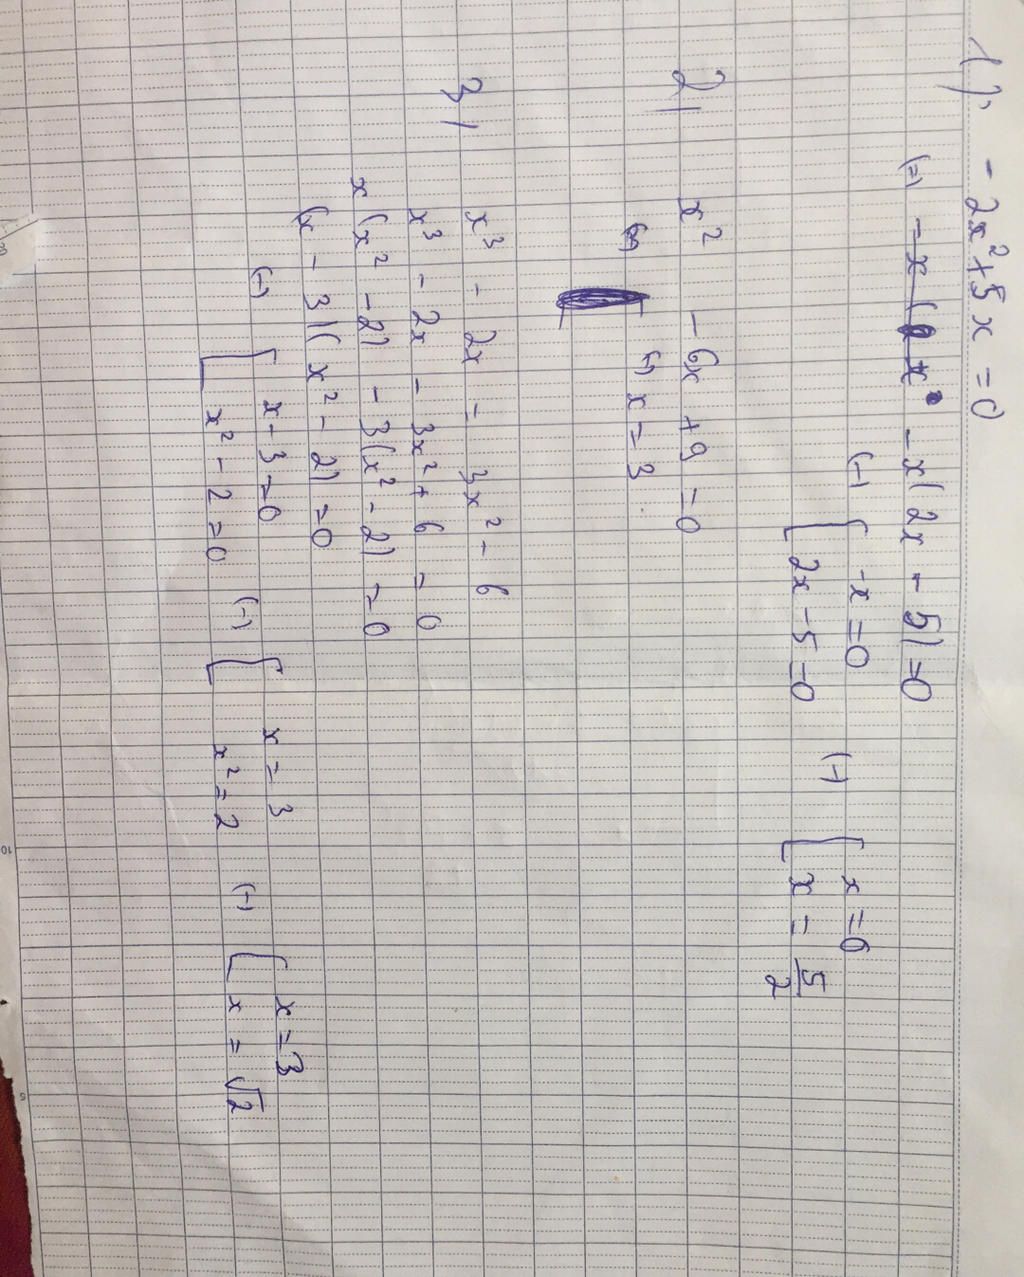 1) -2x²+5x=0
(=) -x( x -x(2x-5)=0
(=) [ -x=0
2x-5=0 (=) [ x=0
x=5/2
2) x² -6x +9 =0
(=) (=) x=3
3) x³ - 2x = 3x² - 6
x³ - 2x - 3x² + 6 = 0
x(x² -2) - 3(x² - 2) = 0
(x - 3)(x² - 2) = 0
(=) [ x-3=0
x² - 2 = 0 (=) [ x = 3
x² = 2 (=) [ x=3
x = √2
10
5